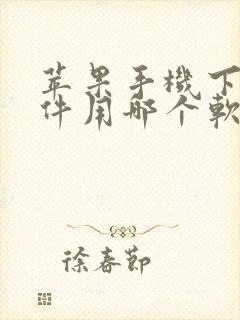 苹果手機下
件用哪个軟
徐春節